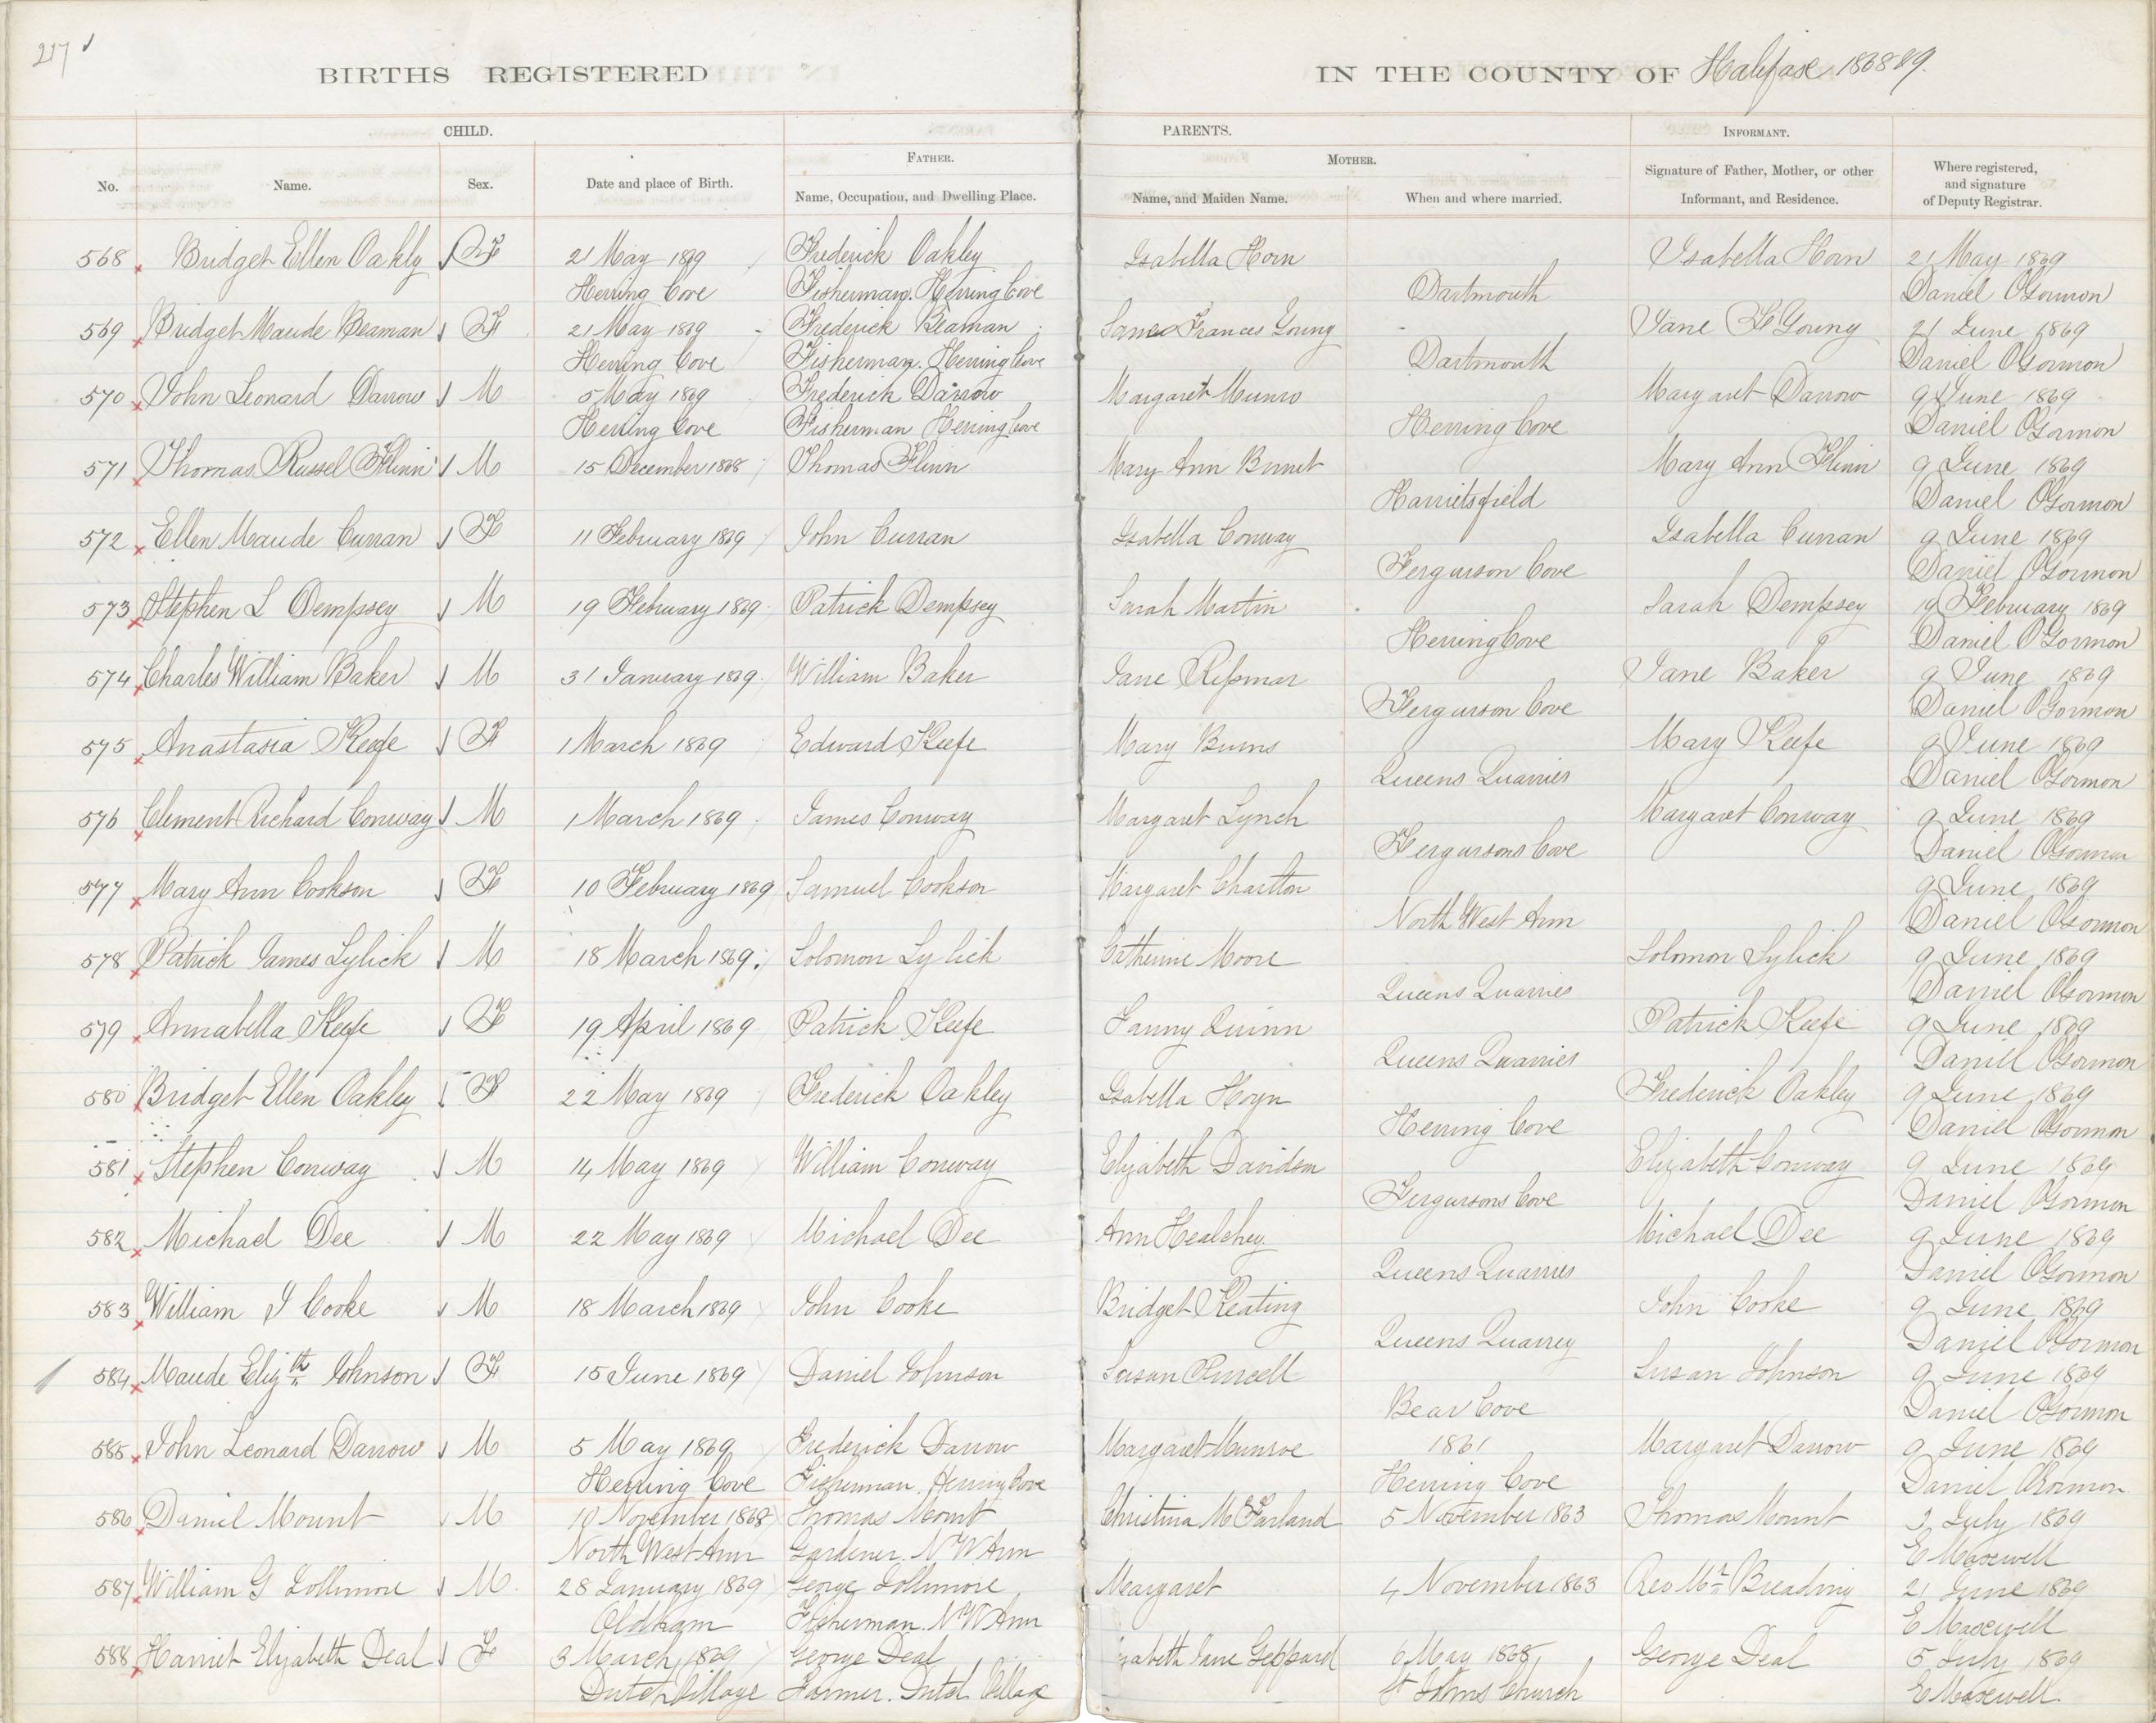 217
BIRTHS REGISTERED IN THE COUNTY OF Halifax 1868 & 9.
CHILD. PARENTS. INFORMANT.
FATHER. MOTHER.
No. Name. Sex. Date and place of Birth. Name, Occupation, and Dwelling Place. Name, and Maiden Name. When and where married. Signature of Father, Mother, or other Informant, and Residence. Where registered, and signature of Deputy Registrar.
568 Bridget Ellen Oakly F 21 May 1869 Frederick Oakley Isabella Horn Isabella Horn 21 May 1869
Herring Cove Fisherman. Herring Cove Dartmouth Daniel O'Gormon
569 Bridget Maude Beaman F 21 May 1869 Frederick Beaman Frances Young Jane F Young 21 June 1869
Herring Cove Fisherman. Herring Cove Dartmouth Daniel O'Gormon
570 John Leonard Darrow M 5 May 1869 Frederick Darrow Margaret Munro Margaret Darrow 9 June 1869
Herring Cove Fisherman Herring Cove Herring Cove Daniel O'Gormon
571 Thomas Russel Flinn M 15 December 1868 Thomas Flinn Mary Ann Burnet Mary Ann Flinn 9 June 1869
Harrietsfield Daniel O'Gormon
572 Ellen Maude Curran F 11 February 1869 John Curran Isabella Conway Isabella Curran 9 June 1869
Ferguson Cove Daniel O'Gormon
573 Stephen L Dempsey M 19 February 1869 Patrick Dempsey Sarah Martin Sarah Dempsey 19 February 1869
Herring Cove Daniel O'Gormon
574 Charles William Baker M 31 January 1869 William Baker Jane Jane Baker 9 June 1869
Ferguson Cove Daniel O'Gormon
575 Anastasia Keefe F 1 March 1869 Edward Keefe Mary Burns Mary Keefe 9 June 1869
Queens Quarries Daniel O'Gormon
576 Clement Richard Conway M 1 March 1869 James Conway Margaret Lynch Margaret Conway 9 June 1869
Fergusons Cove Daniel O'Gormon
577 Mary Ann Cookson F 10 February 1869 Samuel Cookson Margaret Charlton 9 June 1869
North West Arm Daniel O'Gormon
578 Patrick James Lylick M 18 March 1869. Solomon Lylick Catherine Moore Solomon Lylick 9 June 1869
Queens Quarries Daniel O'Gormon
579 Annabella Keefe F 19 April 1869 Patrick Keefe Fanny Quinn Patrick Keefe 9 June 1869
Queens Quarries Daniel O'Gormon
580 Bridget Ellen Oakley F 22 May 1869 Frederick Oakley Isabella Frederick Oakley 9 June 1869
Herring Cove Daniel O'Gormon
581 Stephen Conway M 14 May 1869 William Conway Elizabeth Davidson Elizabeth Conway 9 June 1869
Fergusons Cove Daniel O'Gormon
582 Michael Dee M 22 May 1869 Michael Dee Ann Healchey Michael Dee 9 June 1869
Queens Quarries Daniel O'Gormon
583 William J Cooke M 18 March 1869 John Cooke Bridget Keating John Cooke 9 June 1869
Queens Quarrey Daniel O'Gormon
584 Maude Elizth Johnson F 15 June 1869 Daniel Johnson Susan Purcell Susan Johnson 9 June 1869
Bear Cove Daniel O'Gormon
585 John Leonard Darrow M 5 May 1869 Frederick Darrow Margaret Munroe 1861 Margaret Darrow 9 June 1869
Herring Cove Fisherman. Herring Cove Herring Cove Daniel O'Gormon
586 Daniel Mount M 10 November 1868 Thomas Mount Christina McFarland 5 November 1863 Thomas Mount 2 July 1869
North West Arm Gardener. N W Arm E Maxwell
587 William G Lollimore M. 28 January 1869 George Lollimore Margaret 4 November 1863 Rev Mr Breading 21 June 1869
Oldham Fisherman. N W Arm E Maxwell
588 Harriet Elizabeth Deal F 3 March 1869 George Deal Jane Geppard 6 May 1868 George Deal 5 July 1869
Dutch Village Farmer. Dutch Village St Johns Church E Maxwell